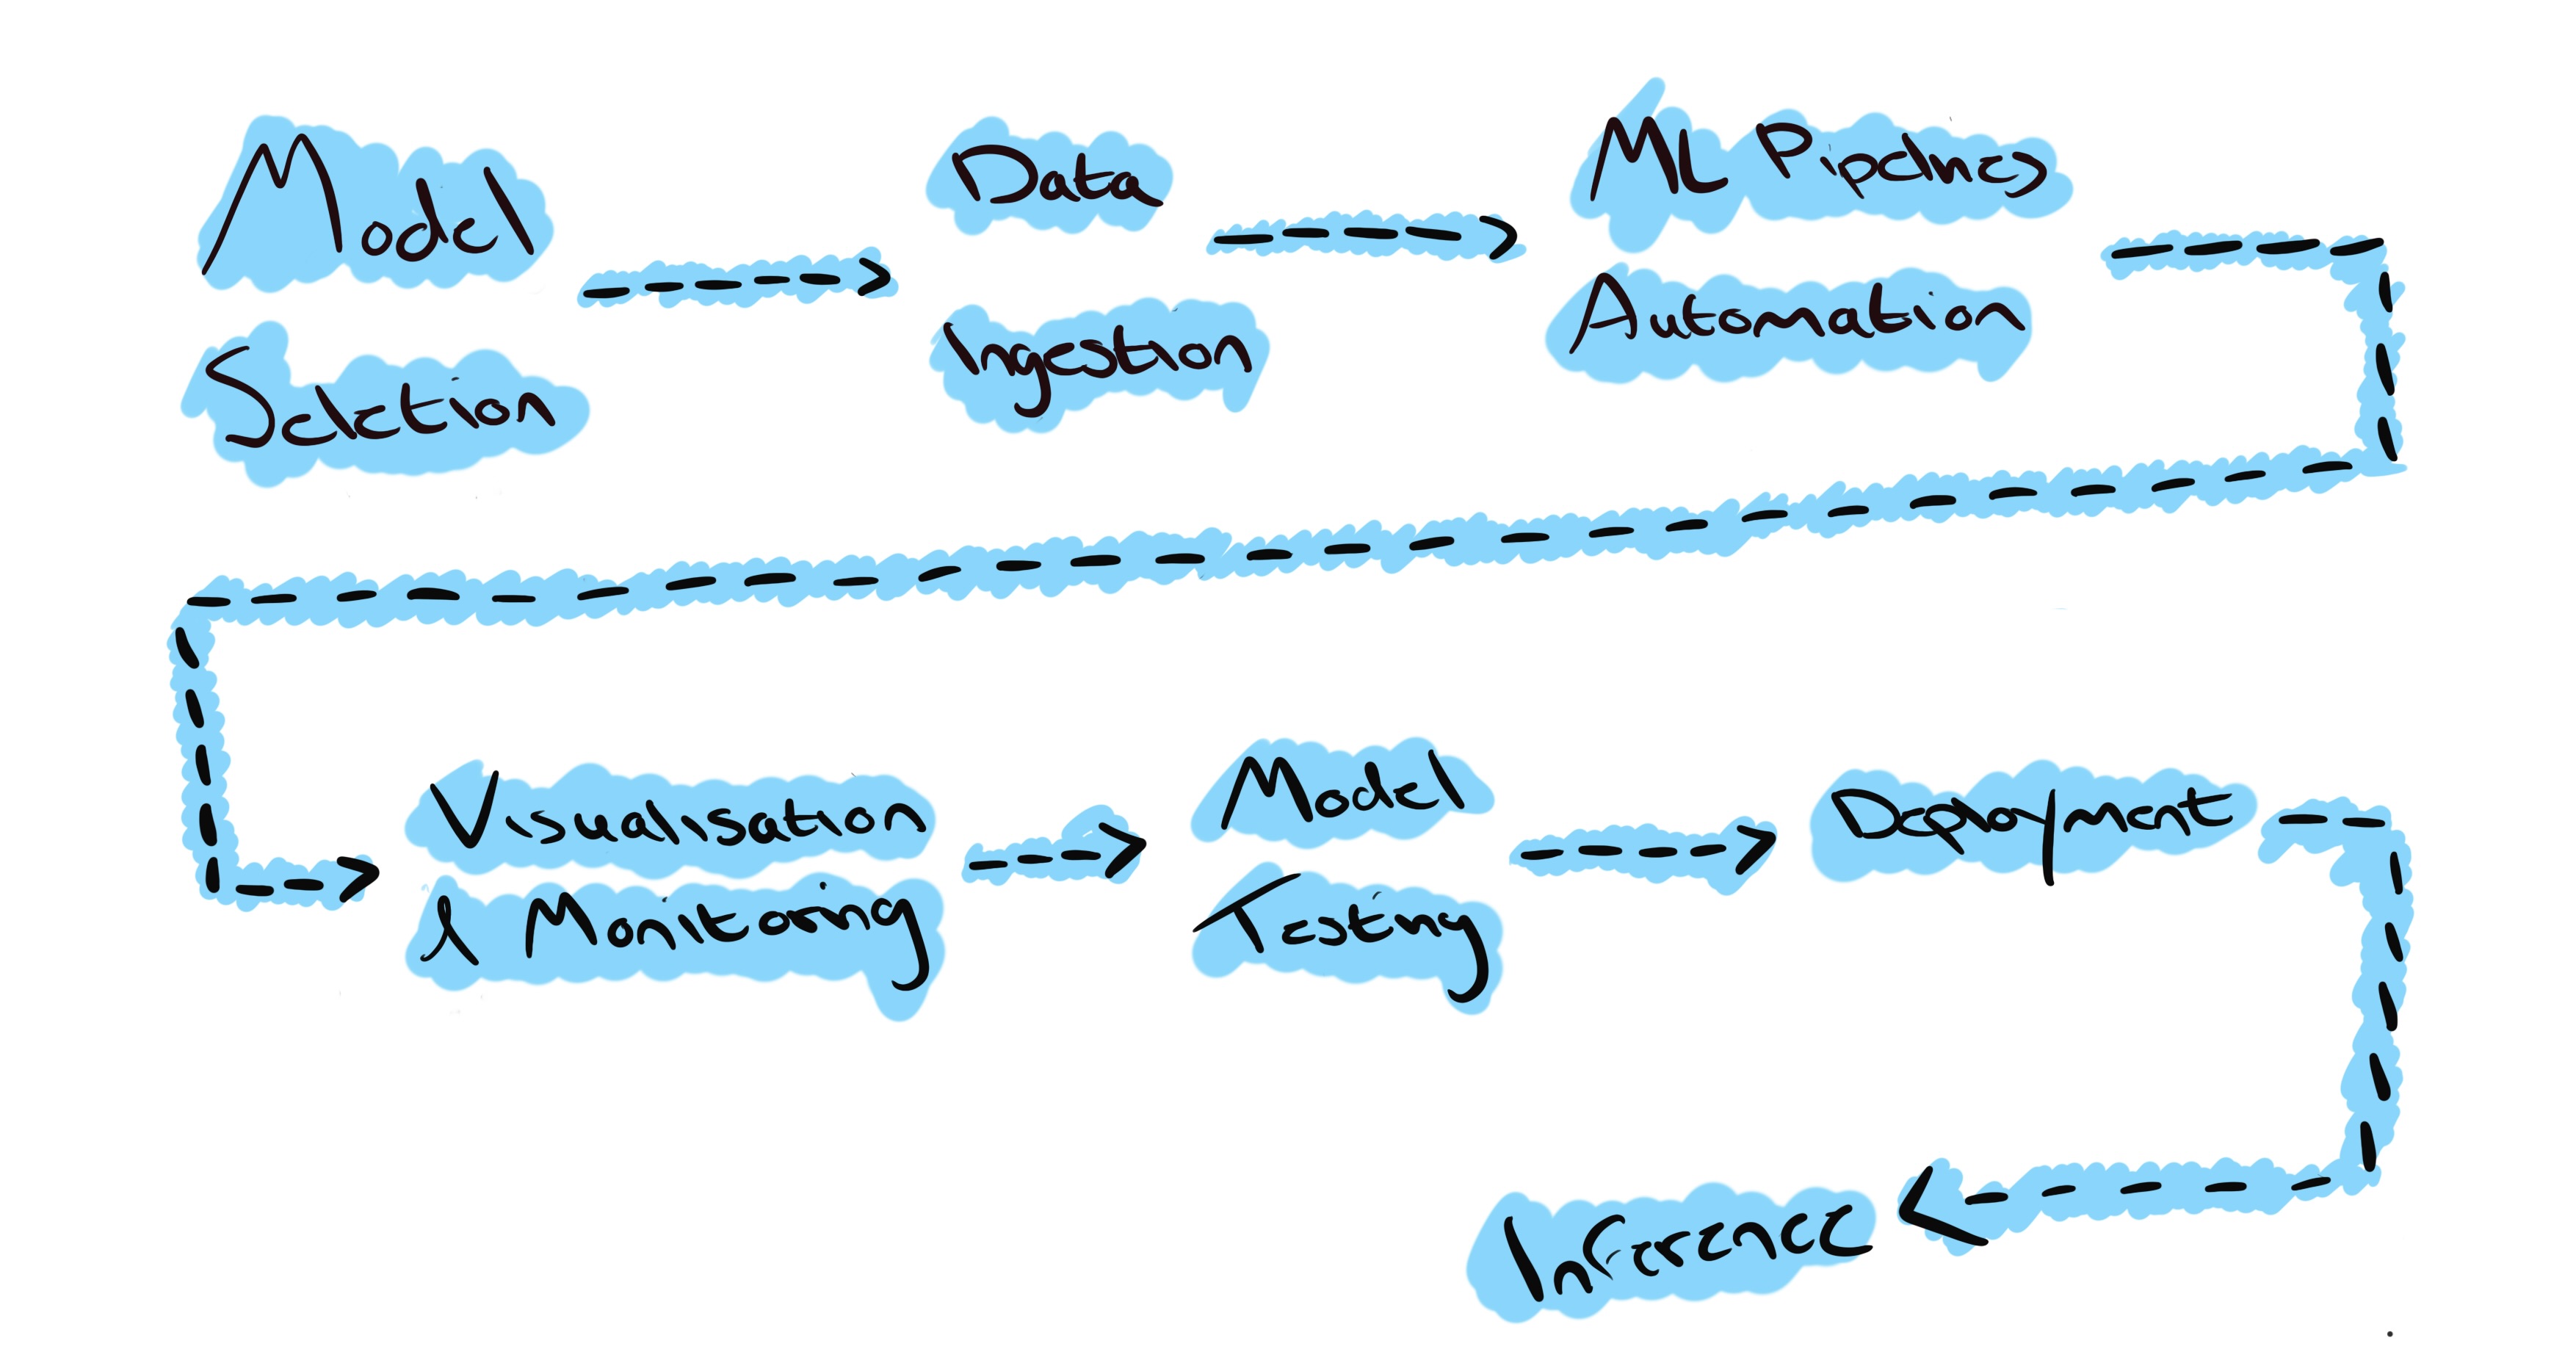 Model
Selection
Data
Ingestion
ML Pipelines
Automation
Visualisation
& Monitoring
Model
Testing
Deployment
Inference